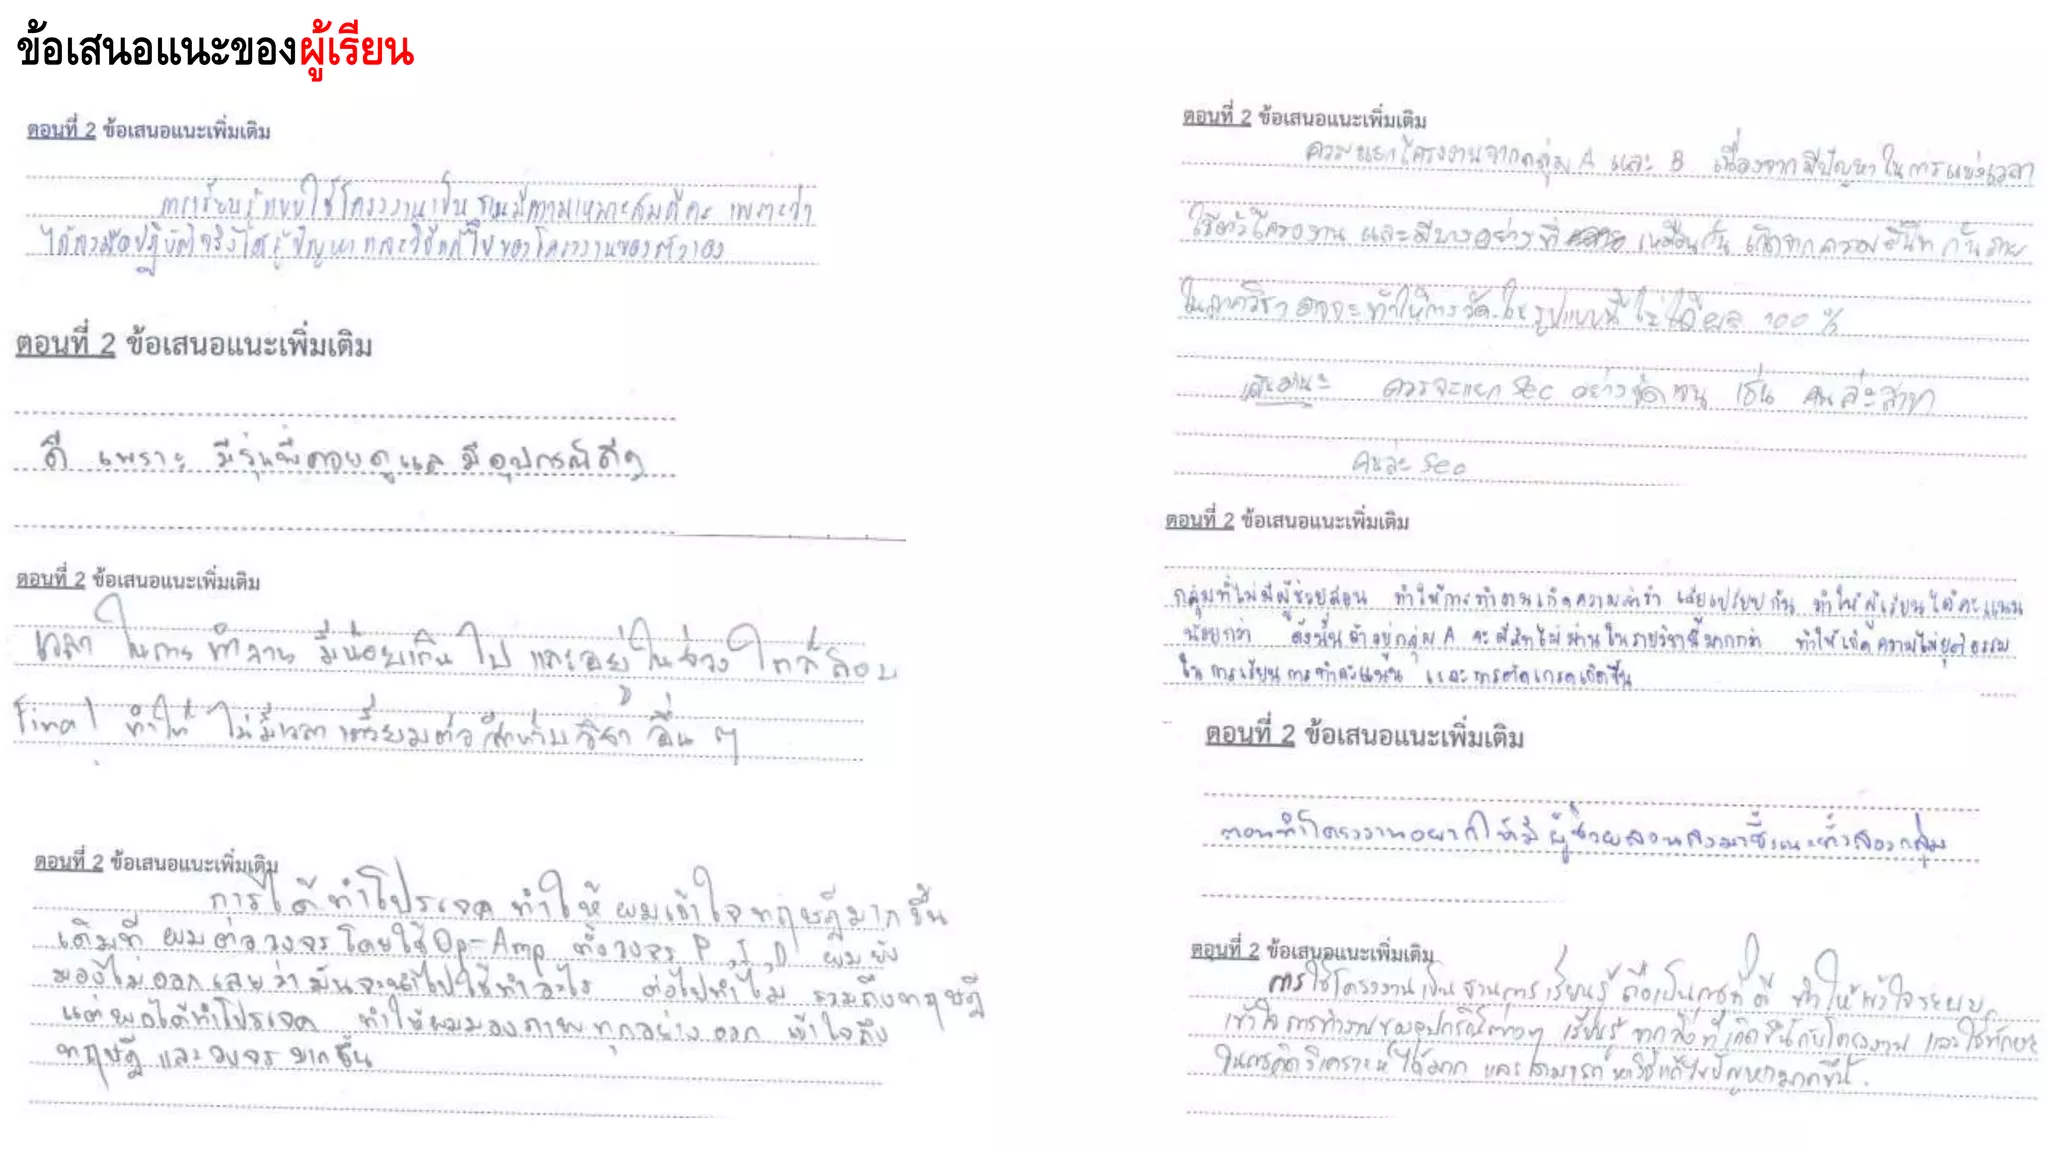 ข้อเสนอแนะของผู้เรียน
ตอนที่ 2 ข้อเสนอแนะเพิ่มเติม
การเรียนรู้แบบใช้โครงงานเป็นฐานมีความเหมาะสมดีคะ เพราะว่า
ได้ลงมือปฏิบัติจริงได้รู้ปัญหาและวิธีแก้ไขของโครงงานของตัวเอง
ตอนที่ 2 ข้อเสนอแนะเพิ่มเติม
ดี เพราะ มีรุ่นพี่คอยดูแล มีอุปกรณ์ดีๆ
ตอนที่ 2 ข้อเสนอแนะเพิ่มเติม
เวลา ในการ ทำงาน มีน้อยเกินไป และอยู่ในช่วง ใกล้สอบ
Final ทำให้ ไม่มีเวลา เตรียมตัว สำหรับ วิชา อื่น ๆ
ตอนที่ 2 ข้อเสนอแนะเพิ่มเติม
การได้ทำโปรเจค ทำให้ ผมเข้าใจทฤษฎีมากขึ้น
เดิมที ผมต่อวงจรโดยใช้ Op-Amp ทั้งวงจร P, I, D ผมยัง
มองไม่ออกเลยว่ามันจะนำไปใช้ทำอะไร ต่อไปทำไม รวมถึงทฤษฎี
แต่พอได้ทำโปรเจค ทำให้ผมมองภาพทุกอย่างออก เข้าใจถึง
ทฤษฎี และวงจรมากขึ้น
ตอนที่ 2 ข้อเสนอแนะเพิ่มเติม
ควรแยกโครงงานจากกลุ่ม A และ B เนื่องจากมีปัญหาในการแบ่งเวลา
ใช้ตัวโครงงาน และมีบางอย่างที่ เหมือนกัน เกิดจากความ กันภาย
ในภาควิชา อาจจะทำให้การวัดใน รูปแบบนี้ไม่ได้ผล 100 %
ควรจะแยก Sec อย่างชัดเจน เช่น คนละสาขา
คนละ Sec
ตอนที่ 2 ข้อเสนอแนะเพิ่มเติม
กลุ่มที่ไม่มีผู้ช่วยสอน ทำให้การทำงานเกิดความล่าช้า เสียเปรียบกัน ทำให้ผู้เรียนได้คะแนน
น้อยกว่า ดังนั้นถ้าอยู่กลุ่ม A จะมีสิทไม่ผ่านในรายวิชานี้มากกว่า ทำให้เกิดความไม่ยุติธรรม
ใน การเรียนการทำคะแนน และการตัดเกรดเกิดขึ้น
ตอนที่ 2 ข้อเสนอแนะเพิ่มเติม
ตอนทำโครงงานอยากให้มี ผู้ช่วยสอนลงมาชี้แนะทั้งสองกลุ่ม
ตอนที่ 2 ข้อเสนอแนะเพิ่มเติม
การใช้โครงงานเป็นฐานการเรียนรู้ ถือเป็นการที่ดี ทำให้เข้าใจระบบ
เข้าใจการทำงานของอุปกรณ์ต่างๆ เรียนรู้ จากสิ่งที่เกิดขึ้นกับโครงงาน และใช้ทักษะ
ในการคิดวิเคราะห์ได้มาก และสามารถหาวิธีแก้ไขปัญหามากขึ้น.